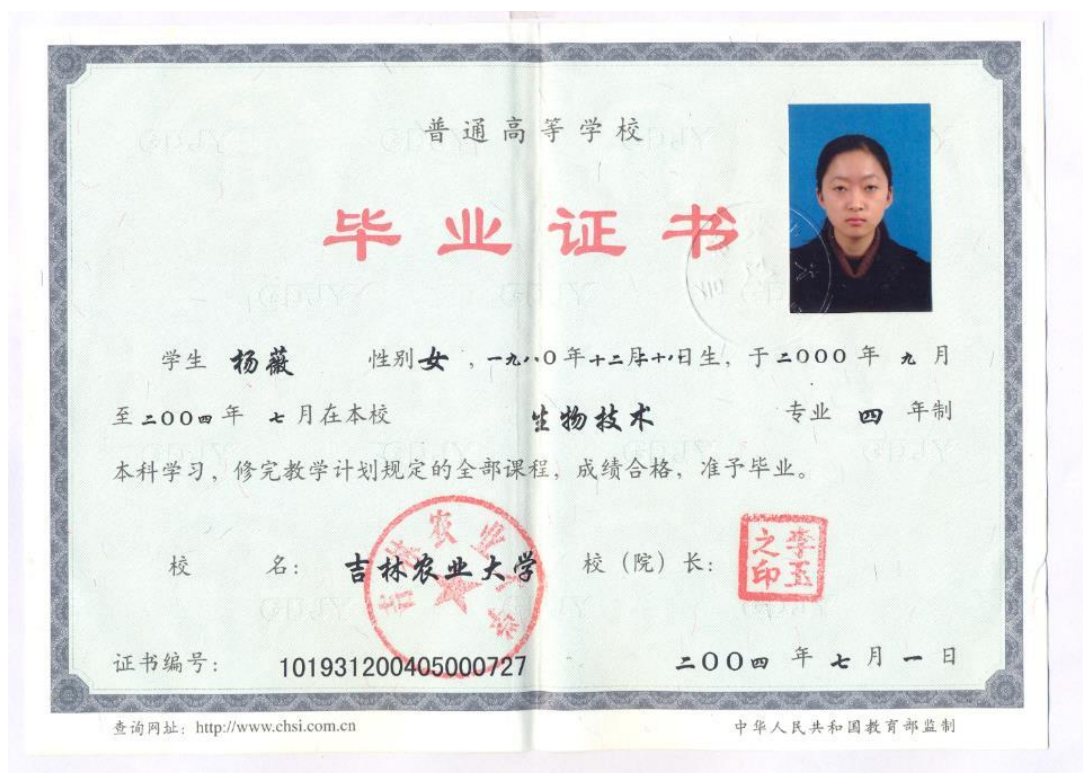 普通高等学校
毕业证书
学生 杨薇 性别 女 ，一九八〇年十二月十八日生，于二〇〇〇年 九 月
至二〇〇四年 七 月在本校 生物技术 专业 四 年制
本科学习，修完教学计划规定的全部课程，成绩合格，准予毕业。
校 名： 吉林农业大学 校（院）长：
吉林农业大学
李玉之印
证书编号： 101931200405000727 二〇〇四 年 七 月 一 日
查询网址：http://www.chsi.com.cn 中华人民共和国教育部监制